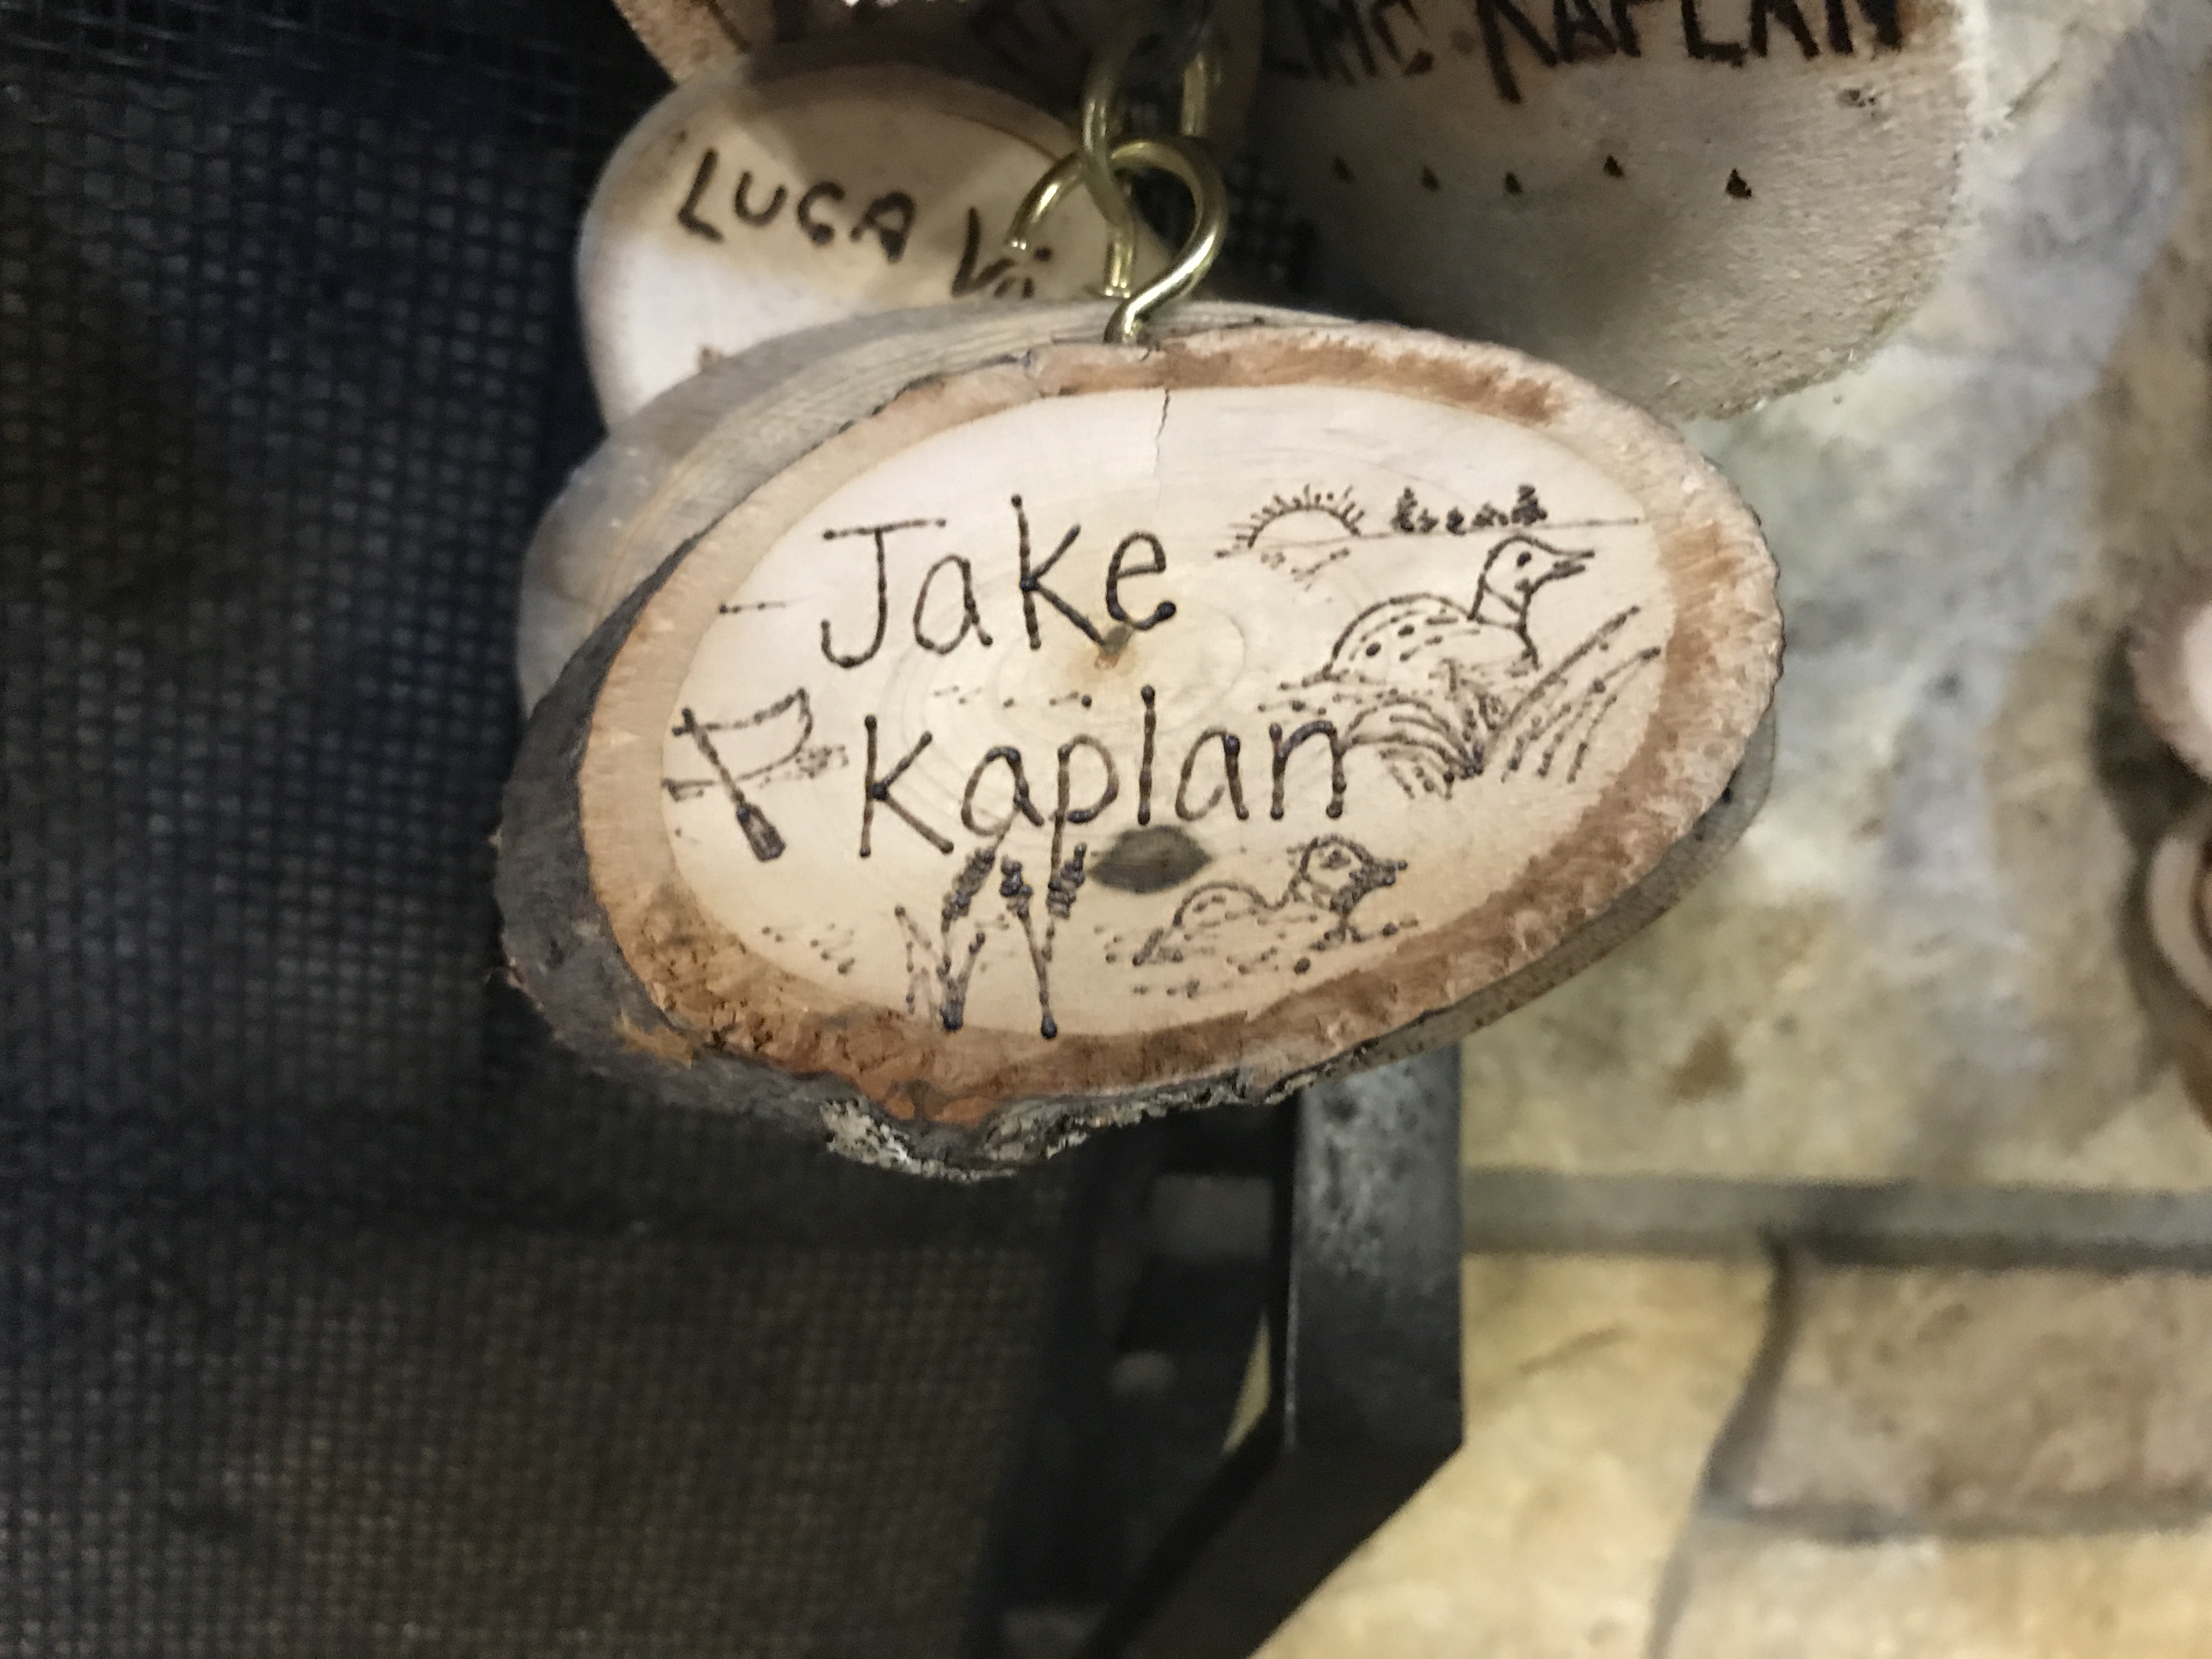 KAPLAN
LUCA
Jake
Kaplan